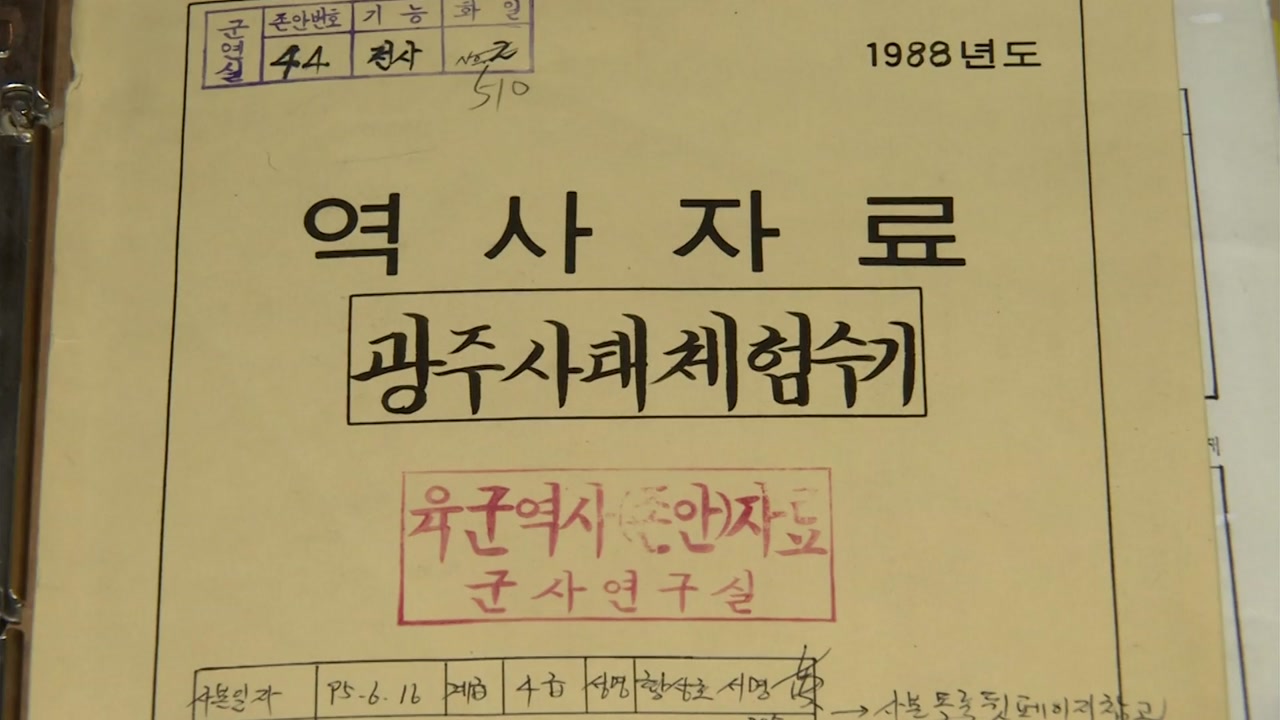 군연실 존안번호 기능 화일
44 전사
510
1988년도
역사자료
광주사태체험수기
육군역사(존안)자료
군사연구실
사본일자 95-6.16 계급 4급 성명 황상호 서명
→ 사본등록 뒷페이지 참고